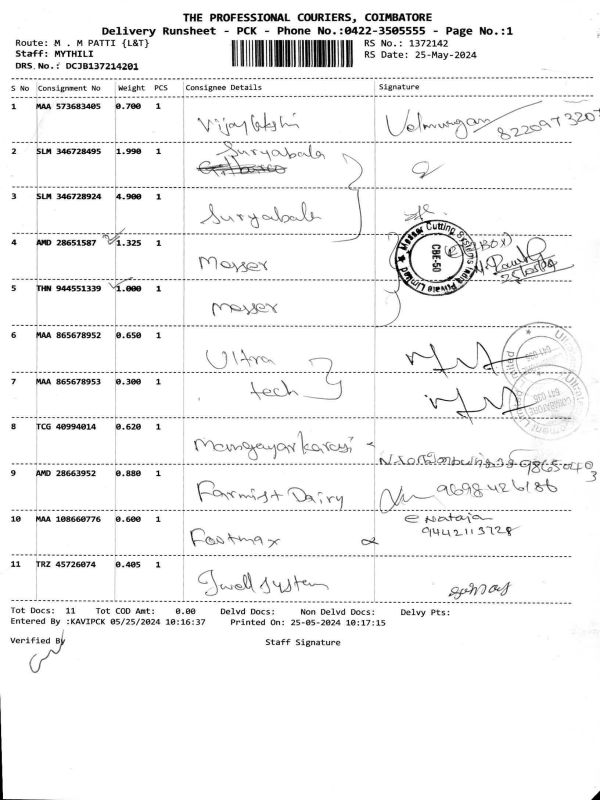 THE PROFESSIONAL COURIERS, COIMBATORE
Delivery Runsheet - PCK - Phone No.:0422-3505555 - Page No.:1
Route: M . M PATTI {L&T}
RS No.: 1372142
Staff: MYTHILI
RS Date: 25-May-2024
DRS No.: DCJB137214201
S No Consignment No Weight PCS Consignee Details Signature
1 MAA 573683405 0.700 1 Velmurugan
2 SLM 346728495 1.990 1 Suryabala
3 SLM 346728924 4.900 1 Suryabala
4 AMD 28651587 1.325 1 Messer
Messer Cutting Systems India Private Limited
CBE-50
5 THN 944551339 1.000 1 Messer
6 MAA 865678952 0.650 1 Ultra
7 MAA 865678953 0.300 1 tech
8 TCG 40994014 0.620 1 Mangayarkarasi
9 AMD 28663952 0.880 1 Farmist Dairy 9698426186
10 MAA 108660776 0.600 1 Footmax 9442113728
11 TRZ 45726074 0.405 1 Jwell system
Tot Docs: 11 Tot COD Amt: 0.00 Delvd Docs: Non Delvd Docs: Delvy Pts:
Entered By :KAVIPCK 05/25/2024 10:16:37 Printed On: 25-05-2024 10:17:15
Verified By Staff Signature